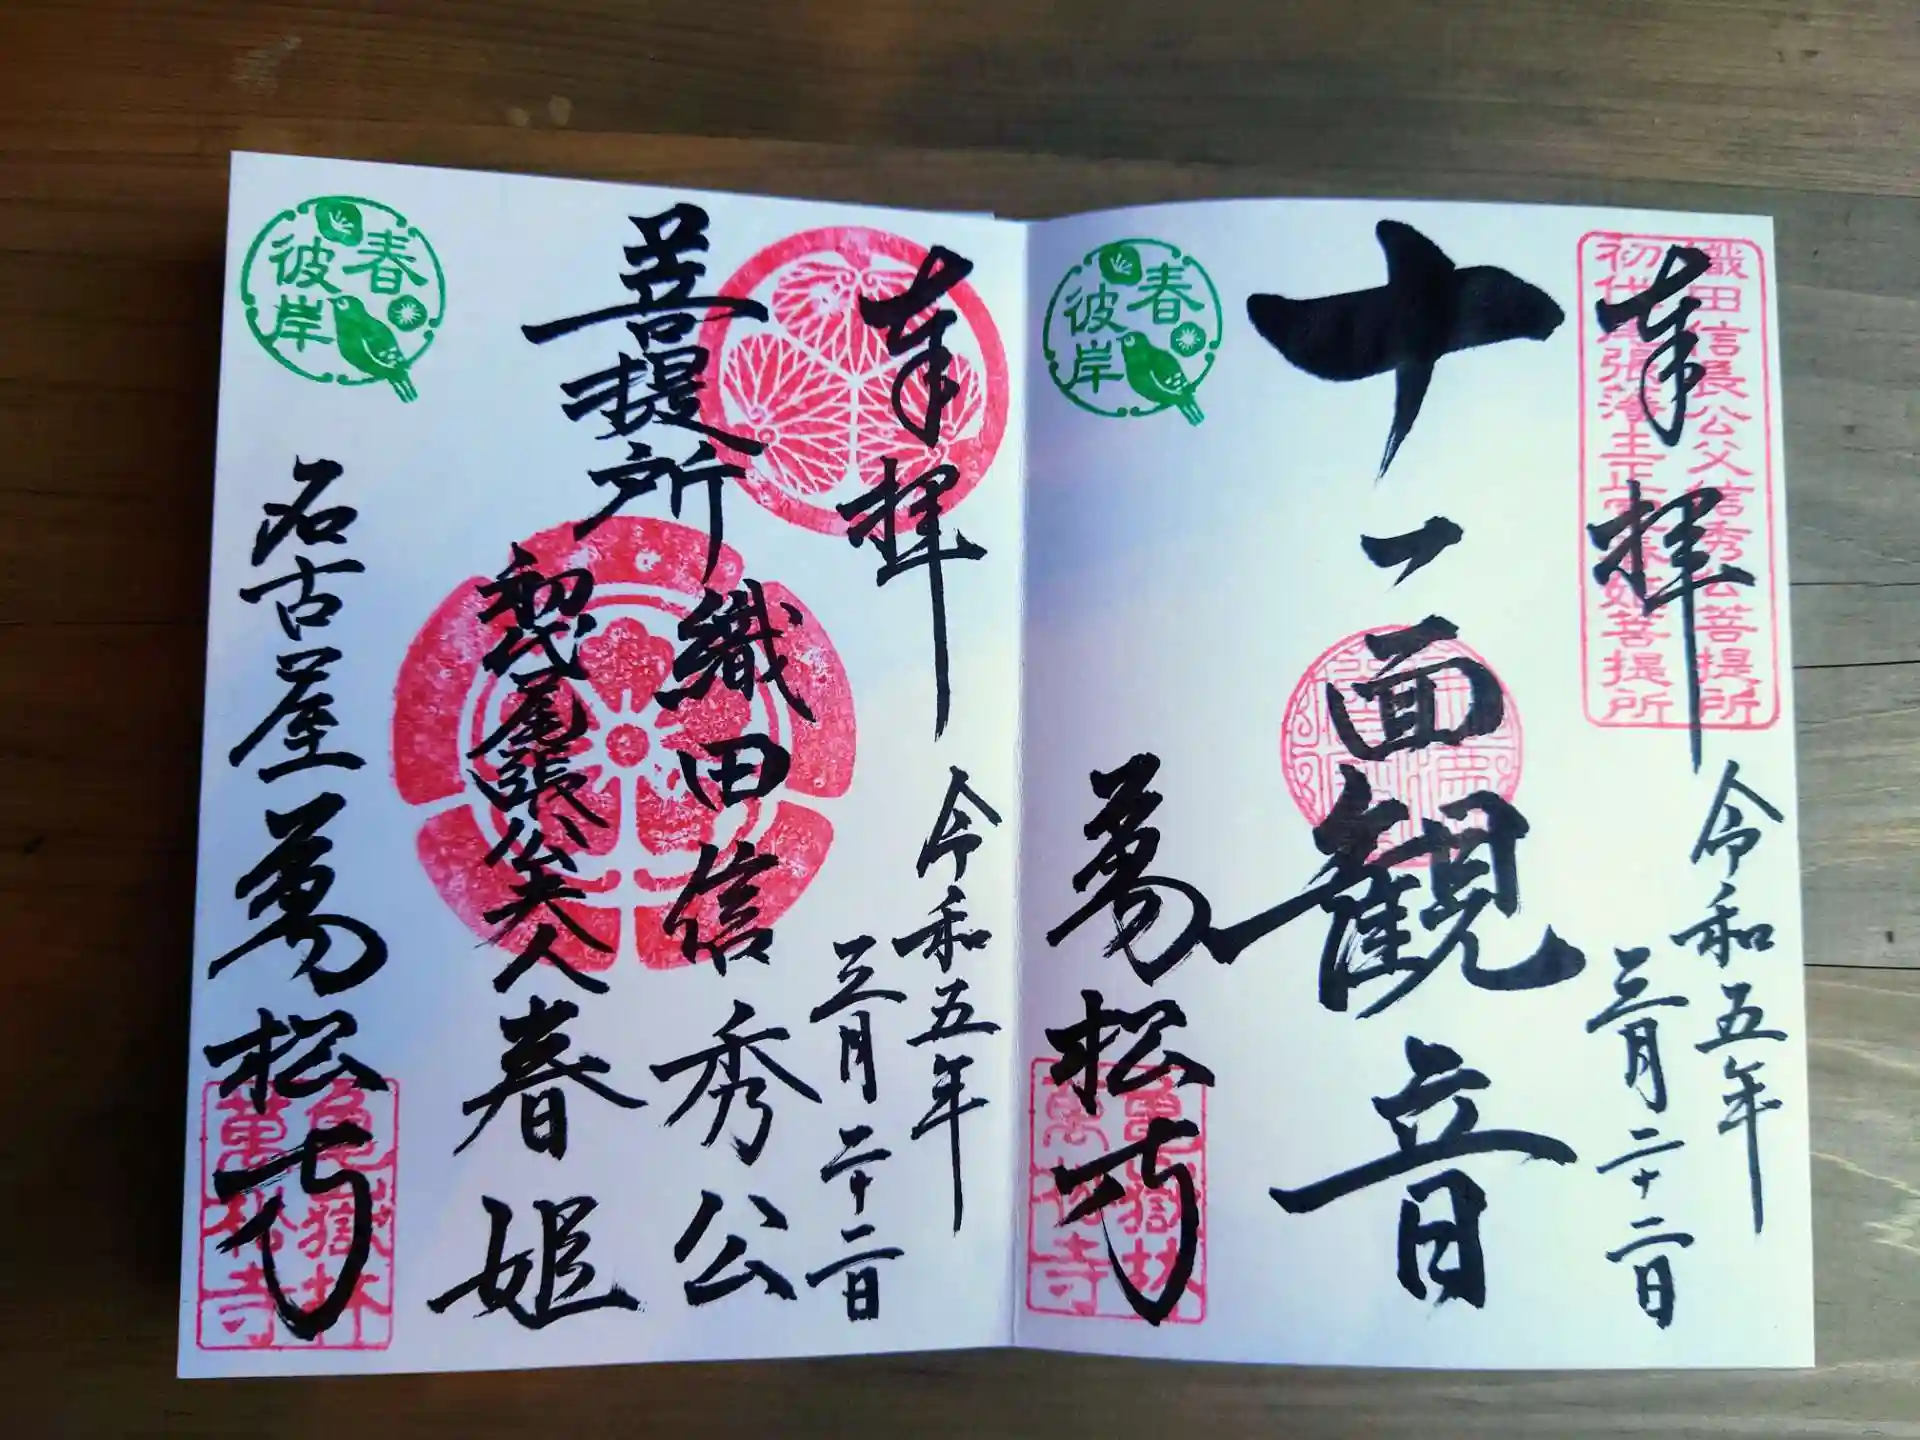 織田信長公父信秀公菩提所
初代尾張藩主正室春姫菩提所
奉拝
令和五年
三月二十二日
十一面観音
春
彼岸
萬松寺
亀嶽林
萬松寺
奉拝
令和五年
三月二十二日
菩提所
織田信秀公
初代尾張公夫人
春姫
春
彼岸
名古屋
萬松寺
亀嶽林
萬松寺